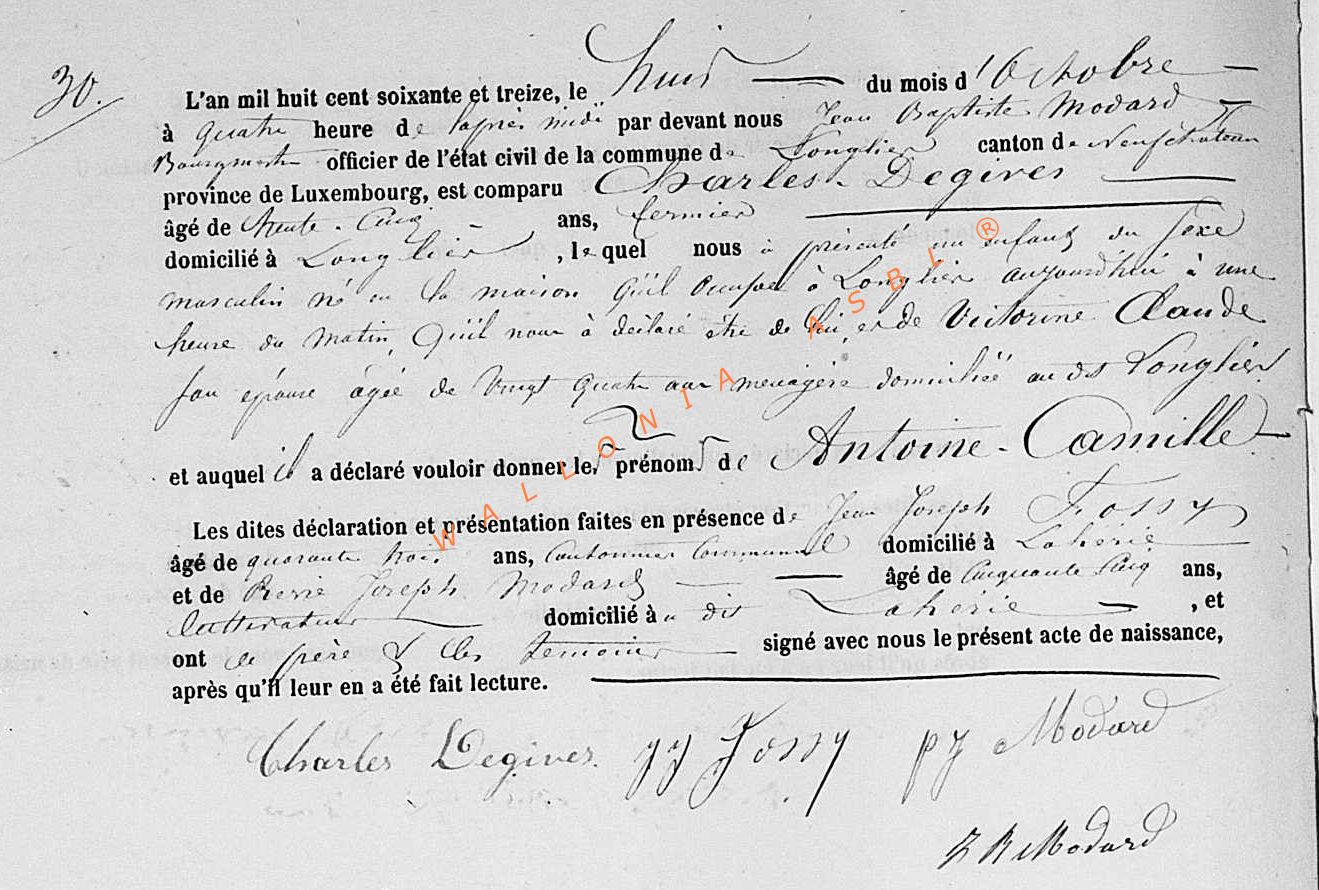 30.
L'an mil huit cent soixante et treize, le huit du mois d'Octobre
à quatre heure de l'après midi par devant nous Jean Baptiste Modard
Bourgmestre officier de l'état civil de la commune de Longlier canton de Neufchateau
province de Luxembourg, est comparu Charles Degives
âgé de trente-cinq ans, fermier
domicilié à Longlier, lequel nous à présenté un enfant du sexe
masculin né en la maison qu'il occupe à Longlier aujourdhui à une
heure du matin, qu'il nous à déclaré être de lui et de Victorine Claude
son épouse âgée de vingt quatre ans menagère domiciliée au dit Longlier
et auquel il a déclaré vouloir donner les prénoms de Antoine-Camille
Les dites déclaration et présentation faites en présence de Jean Joseph Fossy
âgé de quarante trois ans, Cantonnier Communal domicilié à Laherie
et de Pierre Joseph Modard âgé de cinquante cinq ans,
cultivateur domicilié à u dit Laherie, et
ont le père & les temoins signé avec nous le présent acte de naissance,
après qu'il leur en a été fait lecture.
Charles Degives. JJ Fossy PJ Modard
Modard
WALLONIA ASBL ®